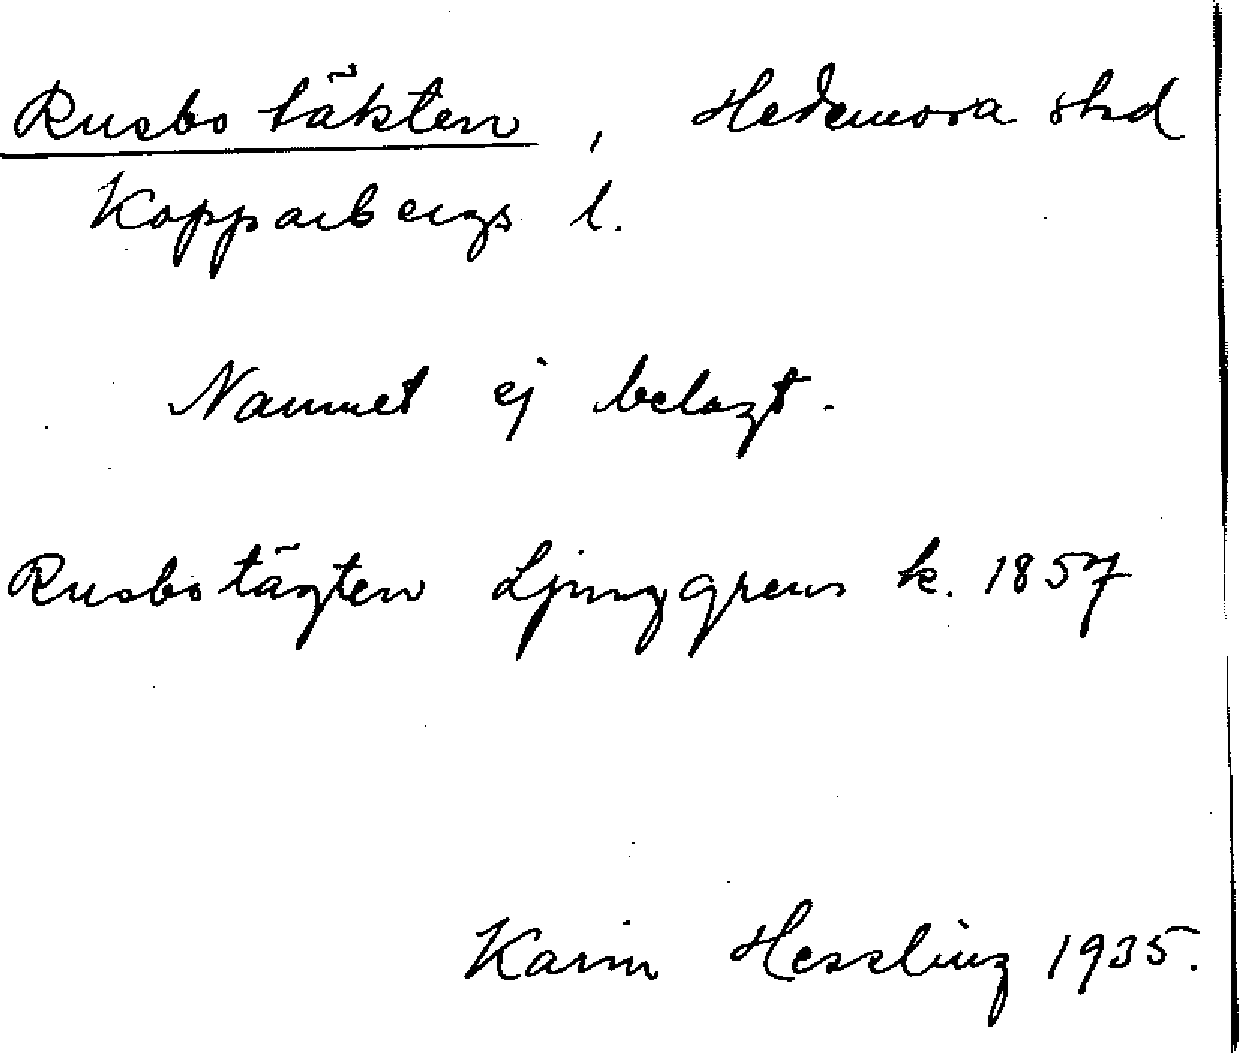 Rusbo täkten, Hedemora skd
Kopparbergs l.
Namnet ej belagt.
Rusbotägten Ljunggrens k. 1857
Karin Hessling 1935.